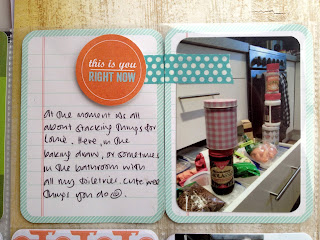 this is you
RIGHT NOW
At the moment it's all
about stacking things for
Here, in the
baking drawer, or sometimes
in the bathroom with
all my toiletries. Cute wee
things you do